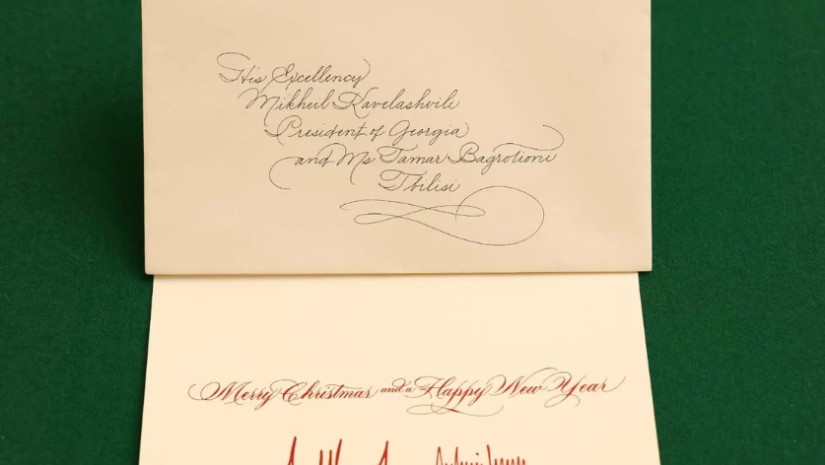 His Excellency
Mikheil Kavelashvili
President of Georgia
and Ms Tamar Bagrationi
Tbilisi
Merry Christmas and a Happy New Year